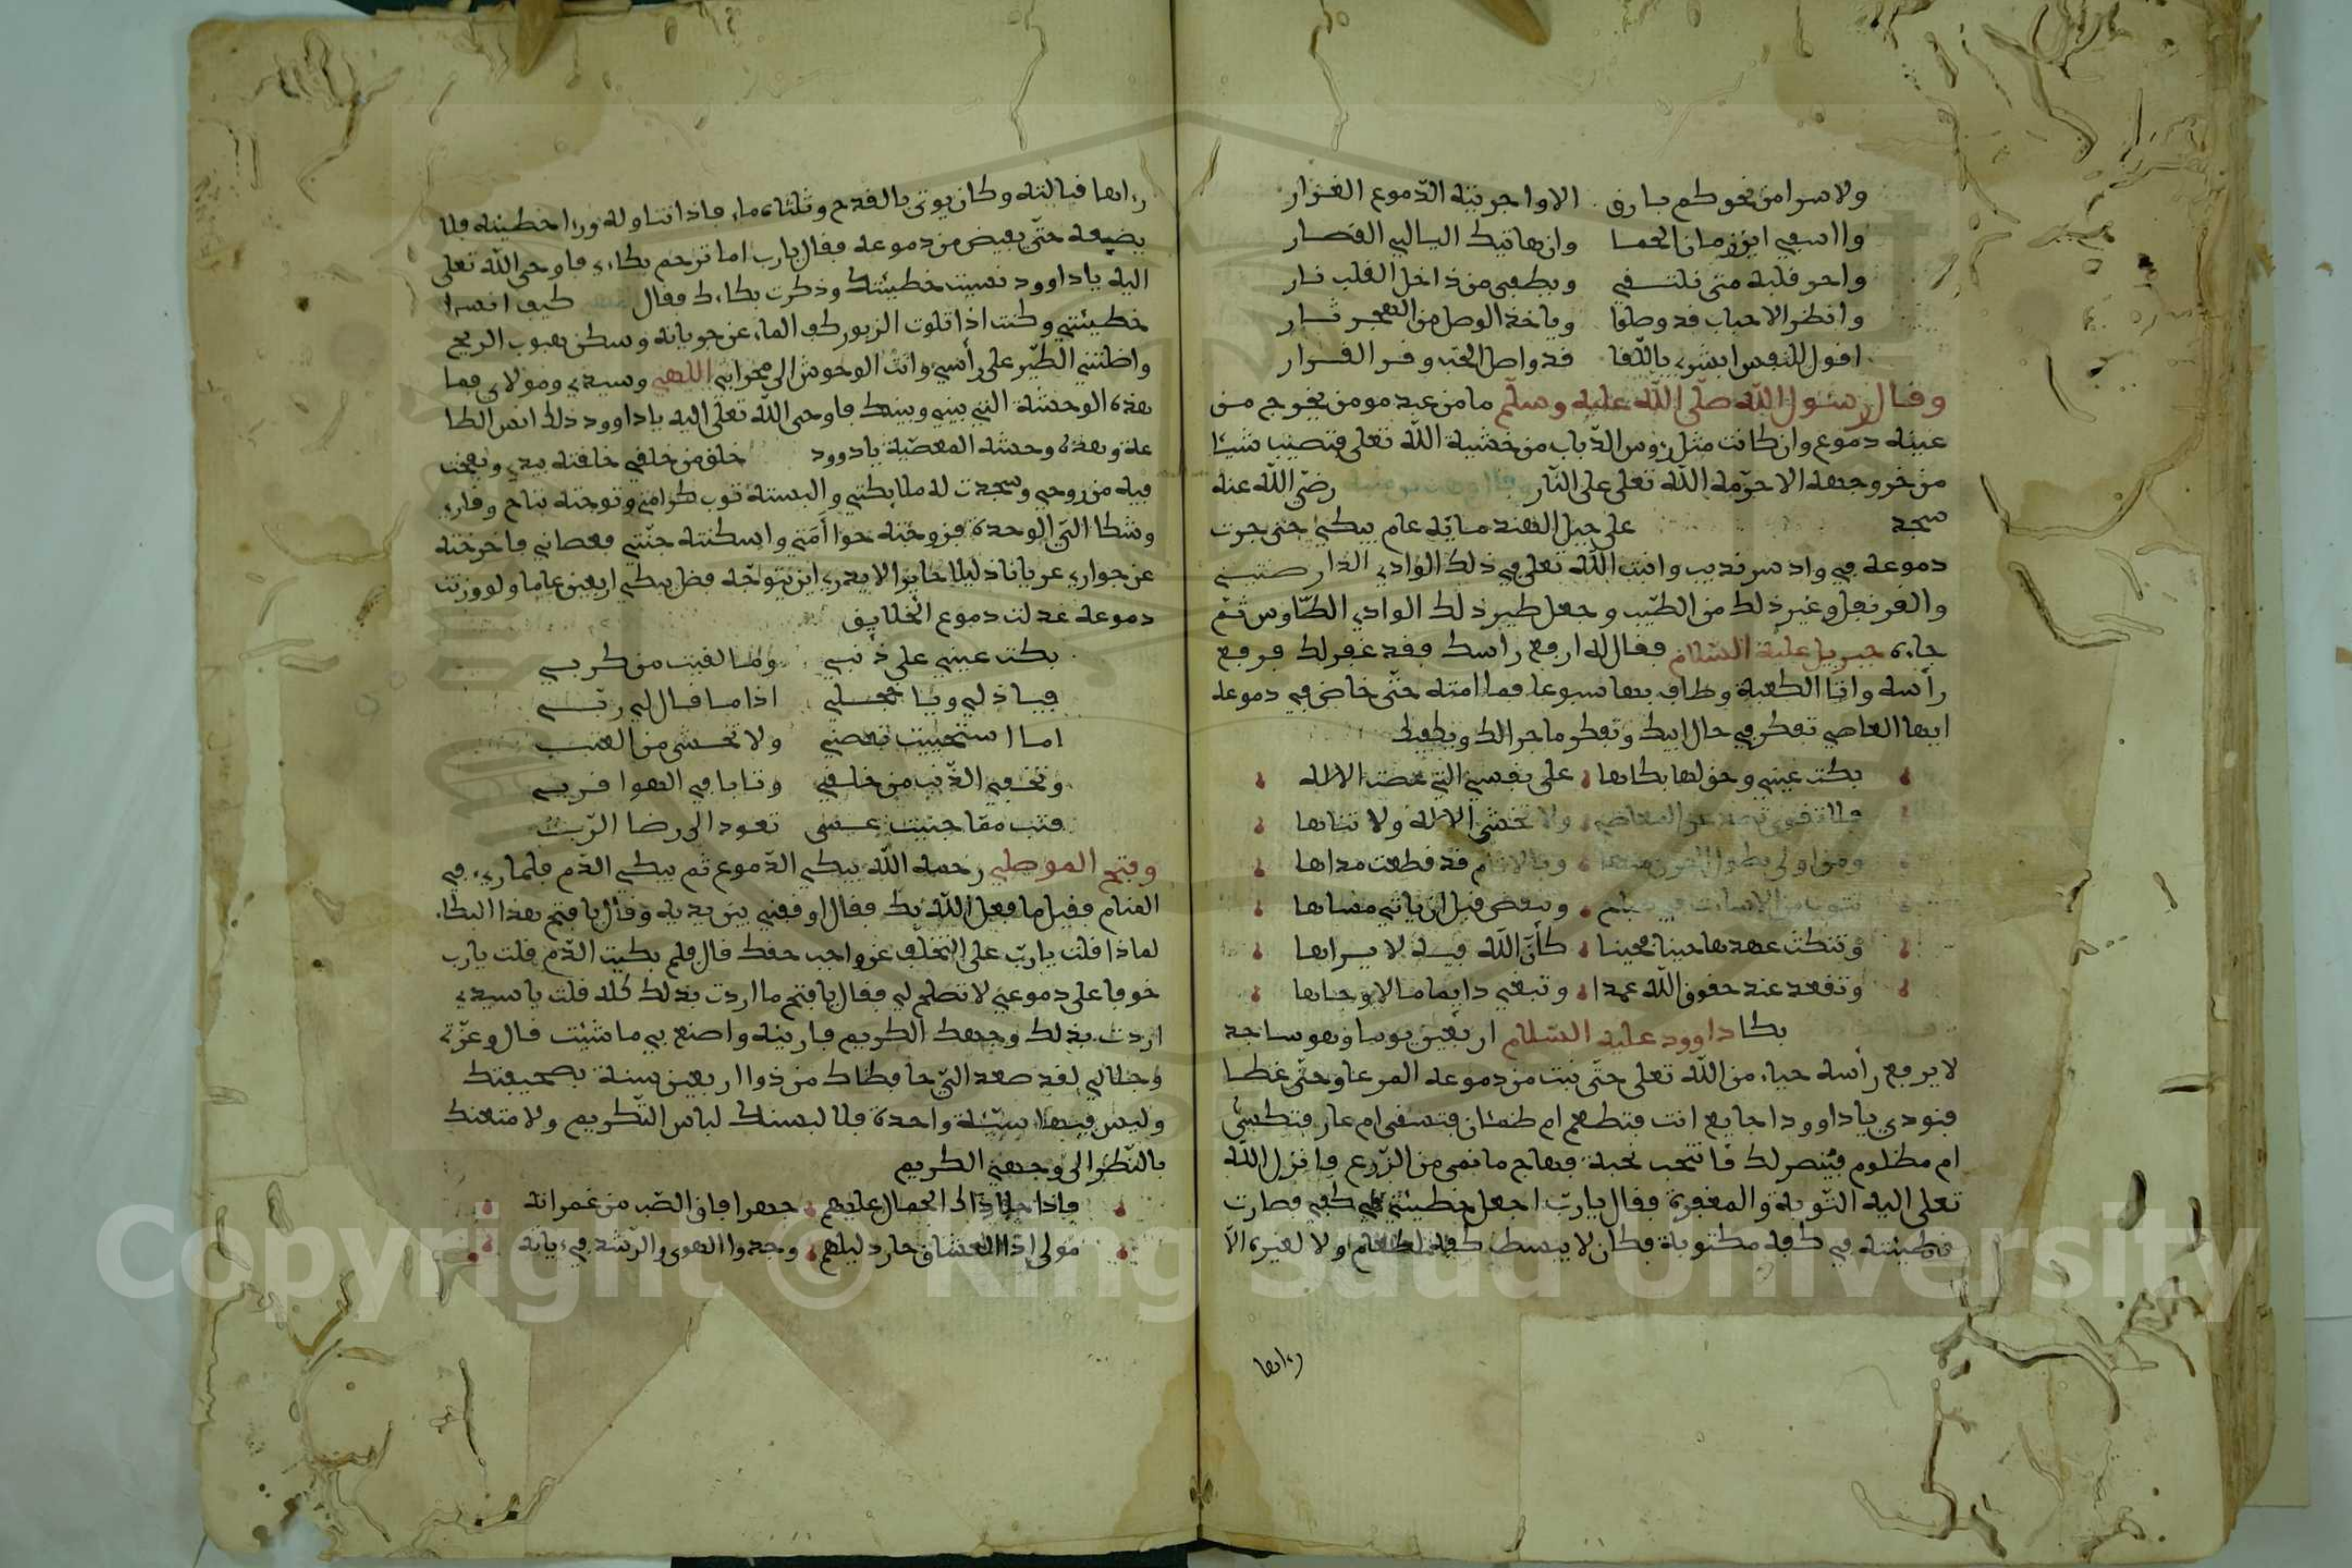 ولا سرا من نحوكم بارق الا واجريته الدموع الغزار
واا سفي اين زمان الحما وان هاتيك اليالي القصار
واحر قلبه متى نلتقي ويطفى من ذاخل القلب نار
وانظر الاحباب قد وصلوا وياخذ الوصل من الهجر ثار
اقول للنفس ابشري باللقا قد واصل الحب وقر القرار
وقال رسول الله صلى الله عليه وسلم ما من عبد مومن يخرج من
عينه دموع وان كانت مثل رؤس الذباب من خشية الله تعلى فتصيب شيئا
من خر وجهه الا حرمه الله تعلى على النار رضي الله عنه
سجد على جبل الهند ماية عام يبكي حتى جرت
دموعه في واد سرنديب وانبت الله تعلى في ذلك الوادي الدار صيني
والقرنفل وغير ذلك من الطيب وجعل طير ذلك الوادي الطاوس ثم
جاءه جبريل عليه السلام فقال له ارفع راسك فقد غفر لك فرفع
رأسه واتا الكعبة وطاف بها سبوعا فما اتمه حتى خاض في دموعه
ايها العاصي تفكر في حال ابيك وتفكر ما جرا لك ويكفيك
بكت عيني وحق لها بكاها على نفسي التي عصت الاله
ولا تخشى الاله ولا تناها
قد قطعت مداها
وتنكث عهدها حينا فحينا كأن الله فيه لا يراها
وتقعد عند حقوق الله عمدا وتبغي دايما مالا وجاها
بكا داوود عليه السلام اربعين يوما وهو ساجد
لا يرفع رأسه حياء من الله تعلى حتى نبت من دموعه المرعا وحتى غطا
فنودي يا داوود اجايع انت فتطعم ام ظمئان فتسقى ام عار فتكسى
ام مظلوم فينصر لك فانتحب نحبة فهاج ما نمى من الزرع فانزل الله
تعلى اليه التوبة والمغفرة فقال يارب اجعل خطيئتي في كفي فصارت
خطيئته في كفه مكتوبة فكان لا يبسط كفه لطعام ولا لغيره الا
رءاها
رءاها فبالته وكان يوتى بالقدح وثلثاه ماء فاذا تناوله ورءا خطيئته فلا
يضعه حتى يفيض من دموعه فقال يارب اما ترحم بكاءي فاوحى الله تعلى
اليه يا داوود نسيت خطيئتك وذكرت بكاءك فقال كيف انسا
خطيئتي وكنت اذا تلوت الزبور كف الماء عن جريانه وسكن هبوب الريح
واظلتني الطير على رأسي وانت الوحوش الى محرابي اللهي وسيدي ومولاي فما
هذه الوحشة التي بيني وبينك فاوحى الله تعلى اليه يا داوود ذلك انس الطا
عة وهذه وحشة المعصية يا دوود خلق من خلقي خلقته بيدي ونفخت
فيه من روحي وسجدت له ملايكتي والبسته ثوب كرامتي وتوجته بتاج وقاري
وشكا الي الوحدة فزوجته حوا أمتي واسكنته جنتي فعصاني فاخرجته
عن جواري عريانا ذليلا حايرا لا يدري اين يتوجه فظل يبكي اربعين عاما ولو وزنت
دموعه عدلت دموع الخلايق
بكت عيني على ذنبي وما لقيت من كربي
فياذلي ويا خجلي اذا ما قال لي ربي
اما استحييت تعصني ولا تخشى من العتب
وتخفي الذنب من خلقي وتابا في الهوا قربي
فتب مما جنيت عسى تعود الى رضا الرب
وفتح الموصلي رحمه الله يبكي الدموع ثم يبكي الدم فلما رءي في
المنام فقيل ما فعل الله بك فقال اوقفني بين يديه وقال يا فتح هذا البكاء
لماذا قلت يارب على التخلف عن واجب حقك قال فلم بكيت الدم قلت يارب
خوفا على دموعي لا تصلح لي فقال يا فتح ما اردت بذلك كله قلت يا سيدي
اردت بذلك وجهك الكريم فارينه واصنع بي ما شئت قال وعزتي
وجلالي لقد صعد الي حافظاك من ذوا اربعين سنة بصحيفتك
وليس فيها سيئة واحدة فلالبسنك لباس التكريم ولامتعنك
بالنظر الى وجهي الكريم
فاذا جلا ذاك الجمال عليهم جهرا فاق الصب من غمراته
مولى اذا العشاق حار دليلهم وجدوا الهوى والرشد في ءياته